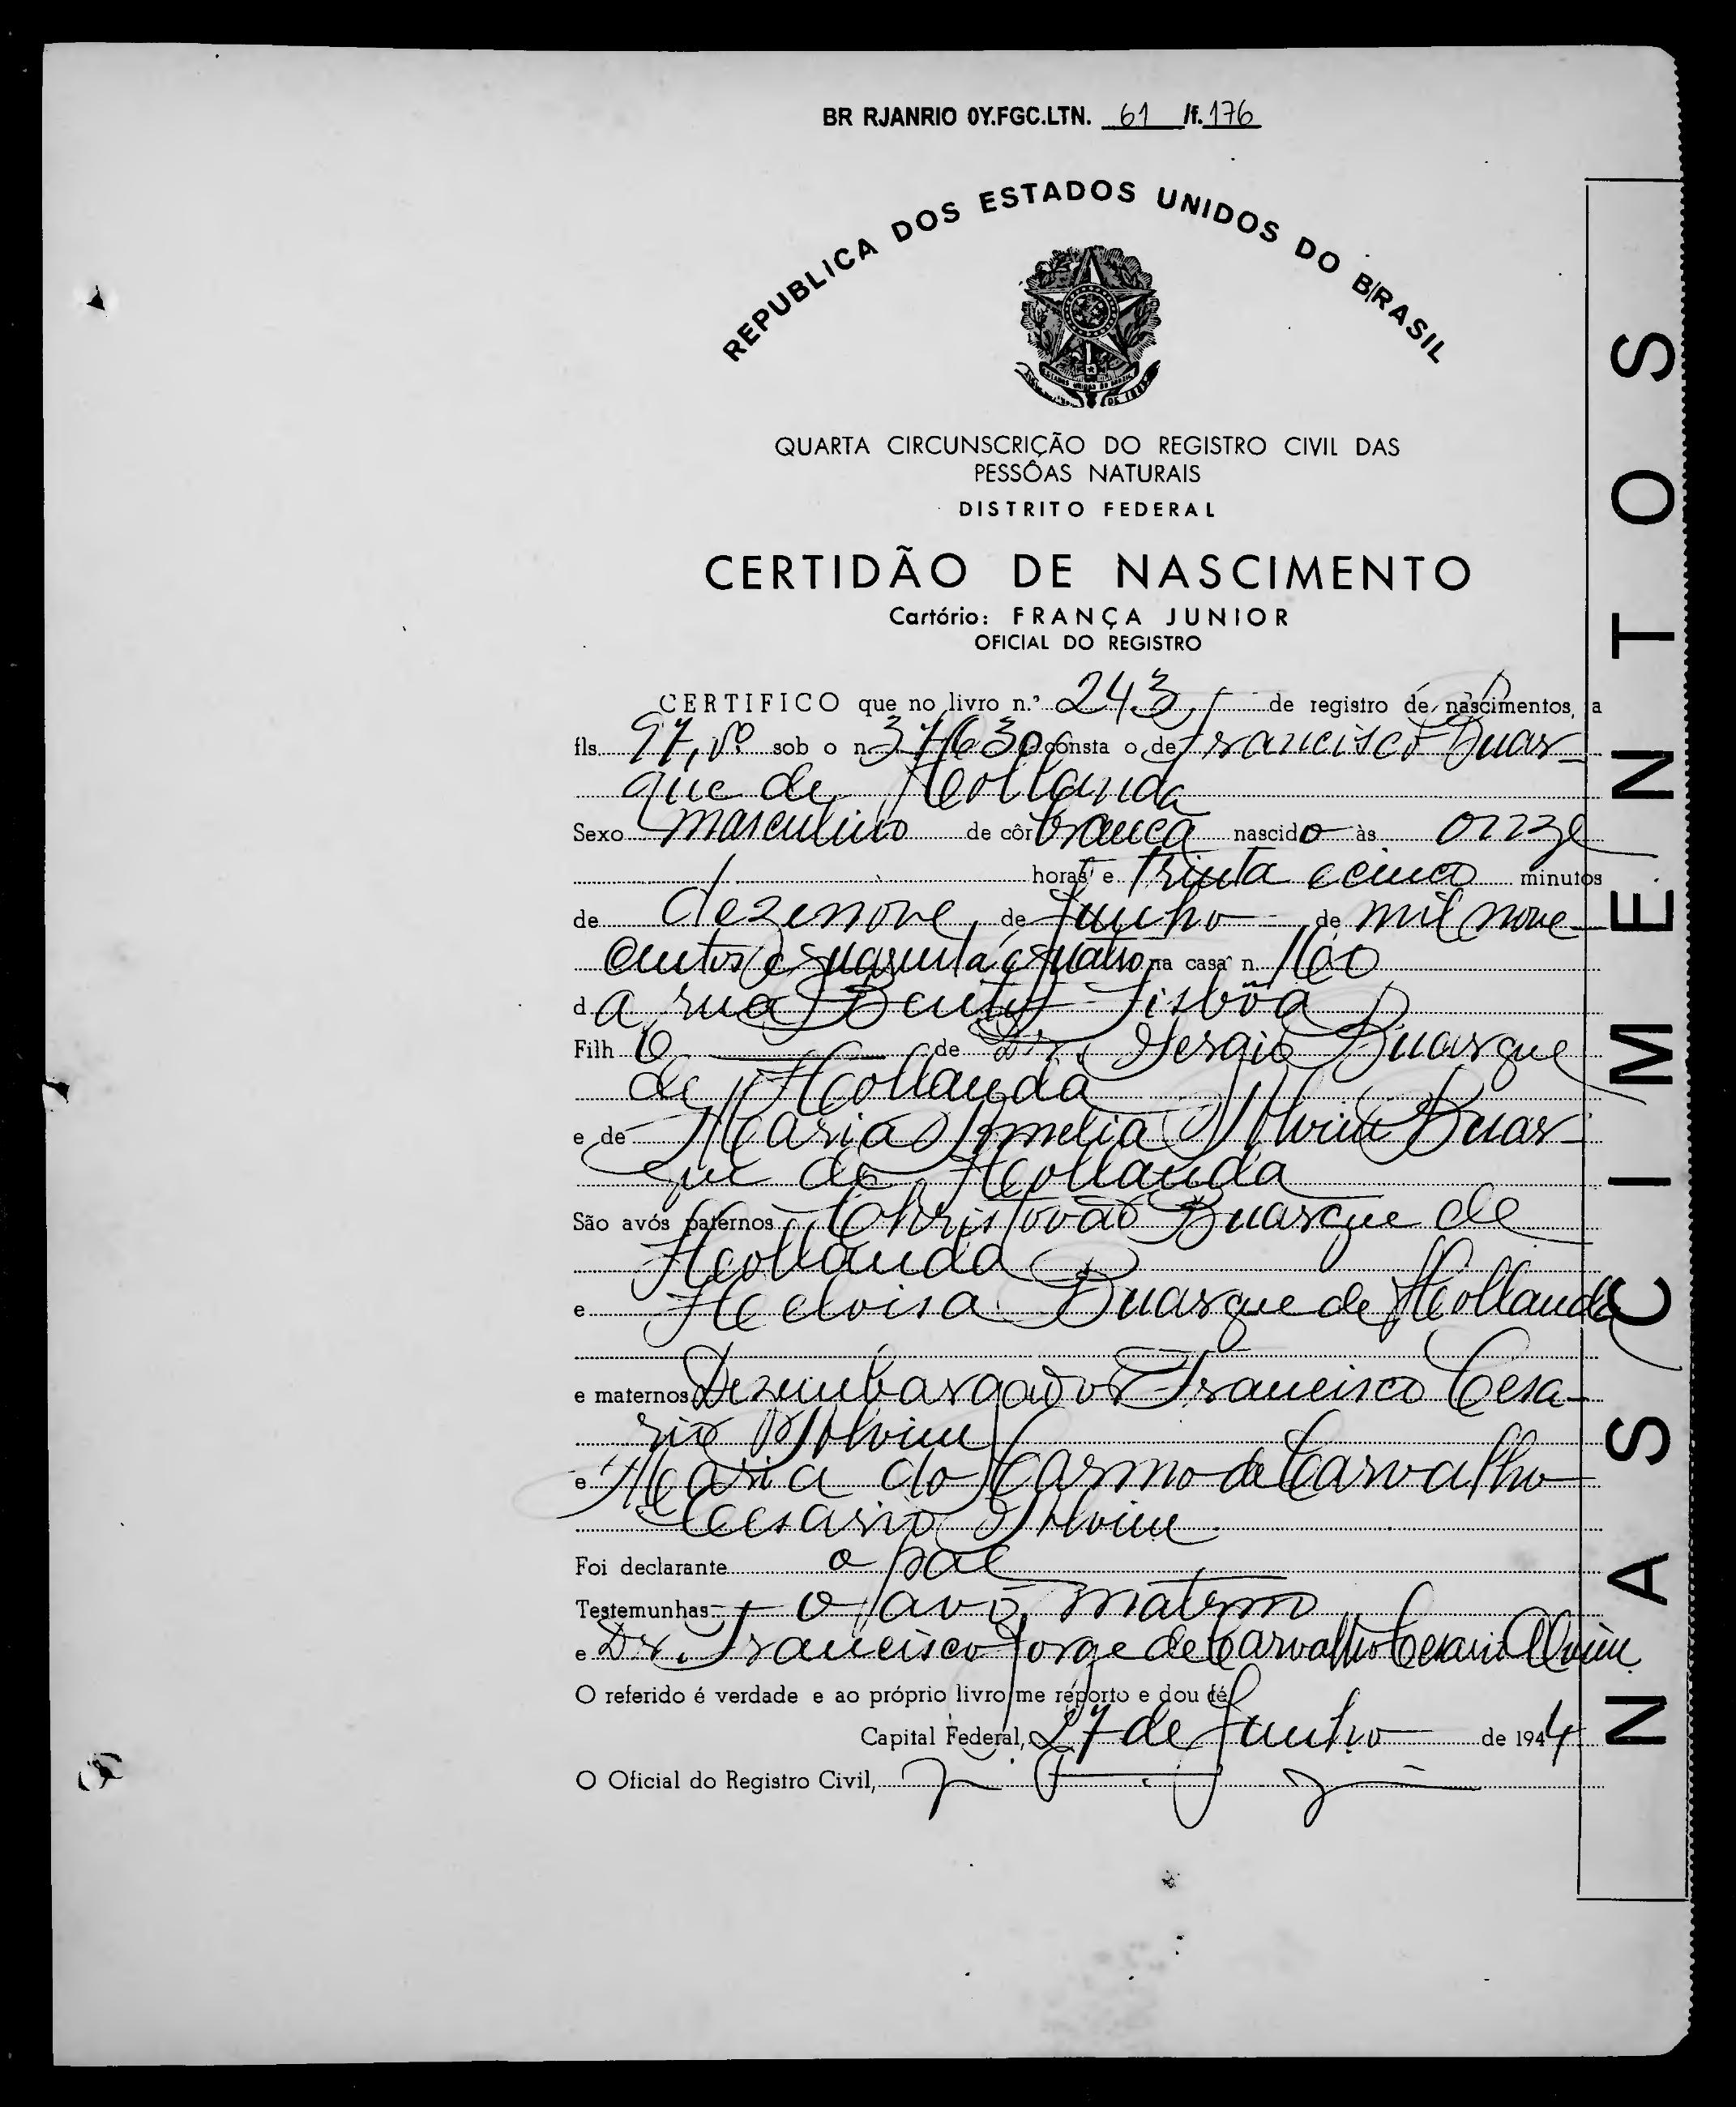 BR RJANRIO 0Y.FGC.LTN. 61 /f. 176
REPUBLICA DOS ESTADOS UNIDOS DO BRASIL
QUARTA CIRCUNSCRIÇÃO DO REGISTRO CIVIL DAS
PESSÔAS NATURAIS
DISTRITO FEDERAL
CERTIDÃO DE NASCIMENTO
Cartório: FRANÇA JUNIOR
OFICIAL DO REGISTRO
CERTIFICO que no livro n.º 243, de registro de nascimentos, a
fls. 97, vº sob o n. 37630 consta o de Francisco Buar-
que de Hollanda
Sexo masculino de côr branca nascido às onze
horas e trinta e cinco minutos
de dezenove de Junho de mil nove-
centos e quarenta e quatro na casa n. 160
da rua Bento Lisbôa
Filho de Dr. Sergio Buarque
de Hollanda
e de Maria Amelia Alvim Buar-
que de Hollanda
São avós paternos Christovão Buarque de
Hollanda
e Heloisa Buarque de Hollanda
e maternos Dezembargador Francisco Cesa-
rio Alvim
e Maria do Carmo de Carvalho
Cesario Alvim
Foi declarante o pae
Testemunhas: o avô materno
e Dr. Francisco Jorge de Carvalho Cesario Alvim
O referido é verdade e ao próprio livro me reporto e dou fé.
Capital Federal, 27 de Junho de 1944
O Oficial do Registro Civil,
NASCIMENTOS